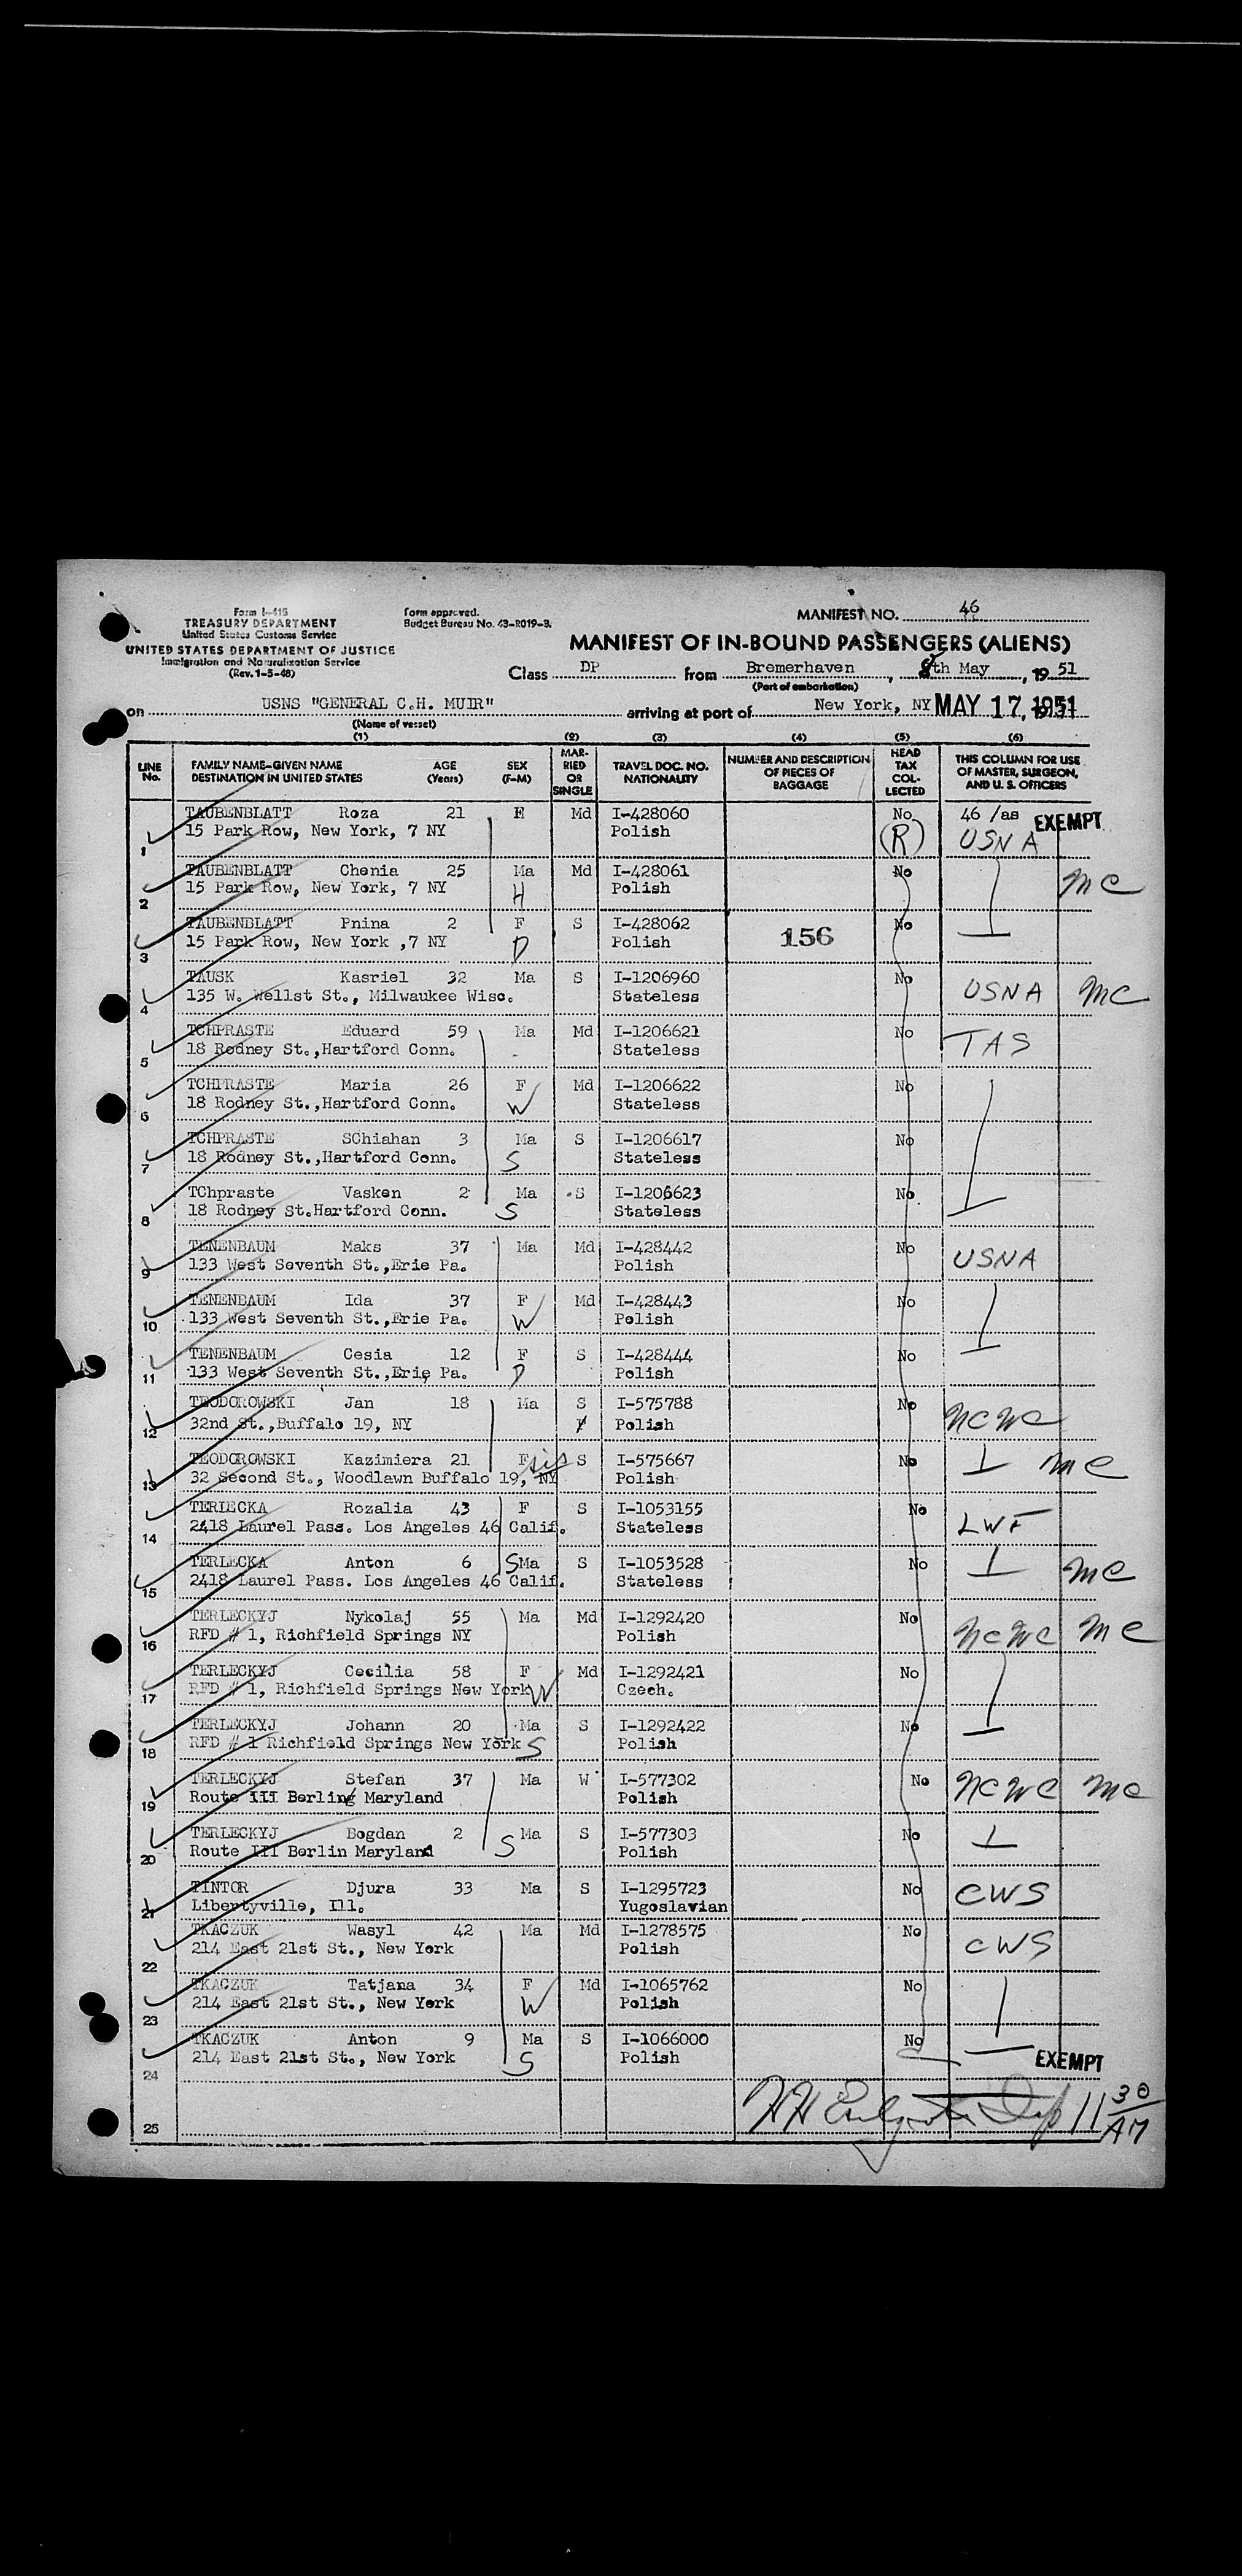 Form I-415
TREASURY DEPARTMENT
United States Customs Service
UNITED STATES DEPARTMENT OF JUSTICE
Immigration and Naturalization Service
(Rev. 1-5-48)
Form approved.
Budget Bureau No. 43-R019-3.
MANIFEST NO. 46
MANIFEST OF IN-BOUND PASSENGERS (ALIENS)
Class DP from Bremerhaven, 8th May, 19 51
(Port of embarkation)
on USNS "GENERAL C.H. MUIR" arriving at port of New York, NY MAY 17, 1951
(Name of vessel)
(1) (2) (3) (4) (5) (6)
LINE No. FAMILY NAME-GIVEN NAME DESTINATION IN UNITED STATES AGE (Years) SEX (F-M) MARRIED OR SINGLE TRAVEL DOC. NO. NATIONALITY NUMBER AND DESCRIPTION OF PIECES OF BAGGAGE HEAD TAX COLLECTED THIS COLUMN FOR USE OF MASTER, SURGEON, AND U. S. OFFICERS
TAUBENBLATT Roza 21 F Md I-428060 No 46 /as EXEMPT
1 15 Park Row, New York, 7 NY Polish (R) USNA
TAUBENBLATT Chenia 25 Ma Md I-428061 No
2 15 Park Row, New York, 7 NY H Polish MC
TAUBENBLATT Pnina 2 F S I-428062 156 No
3 15 Park Row, New York ,7 NY D Polish
TAUSK Kasriel 32 Ma S I-1206960 No USNA MC
4 135 W. Wellst St., Milwaukee Wisc. Stateless
TCHPRASTE Eduard 59 Ma Md I-1206621 No TAS
5 18 Rodney St.,Hartford Conn. Stateless
TCHPRASTE Maria 26 F Md I-1206622 No
6 18 Rodney St.,Hartford Conn. W Stateless
TCHPRASTE SChiahan 3 Ma S I-1206617 No
7 18 Rodney St.,Hartford Conn. S Stateless
TChpraste Vasken 2 Ma S I-1206623 No
8 18 Rodney St.Hartford Conn. S Stateless
TENENBAUM Maks 37 Ma Md I-428442 No USNA
9 133 West Seventh St.,Erie Pa. Polish
TENENBAUM Ida 37 F Md I-428443 No
10 133 West Seventh St.,Erie Pa. W Polish
TENENBAUM Cesia 12 F S I-428444 No
11 133 West Seventh St.,Erie Pa. D Polish
TEODOROWSKI Jan 18 Ma S I-575788 No NCWC
12 32nd St.,Buffalo 19, NY Polish
TEODOROWSKI Kazimiera 21 F sis S I-575667 No MC
13 32 Second St., Woodlawn Buffalo 19, NY Polish
TERLECKA Rozalia 43 F S I-1053155 No LWF
14 2418 Laurel Pass. Los Angeles 46 Calif. Stateless
TERLECKA Anton 6 S Ma S I-1053528 No MC
15 2418 Laurel Pass. Los Angeles 46 Calif. Stateless
TERLECKYJ Nykolaj 55 Ma Md I-1292420 No NCWC MC
16 RFD # 1, Richfield Springs NY Polish
TERLECKYJ Cecilia 58 F Md I-1292421 No
17 RFD # 1, Richfield Springs New York W Czech.
TERLECKYJ Johann 20 Ma S I-1292422 No
18 RFD # 1 Richfield Springs New York S Polish
TERLECKYJ Stefan 37 Ma W I-577302 No NCWC MC
19 Route III Berling Maryland Polish
TERLECKYJ Bogdan 2 Ma S I-577303 No
20 Route III Berlin Maryland S Polish
TINTOR Djura 33 Ma S I-1295723 No CWS
21 Libertyville, Ill. Yugoslavian
TKACZUK Wasyl 42 Ma Md I-1278575 No CWS
22 214 East 21st St., New York Polish
TKACZUK Tatjana 34 F Md I-1065762 No
23 214 East 21st St., New York W Polish
TKACZUK Anton 9 Ma S I-1066000 No
24 214 East 21st St., New York S Polish EXEMPT
25 11 30 AM